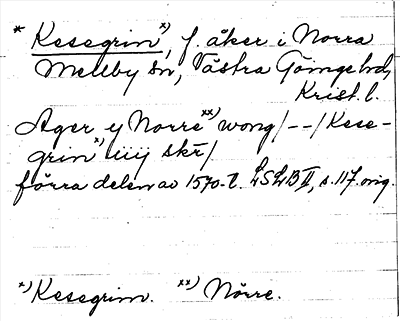 * Kesegrin x), f. åker i Norra
Mellby sn, Västra Göinge hd,
Krist. l.
Ager y Norre xx) wong/--/Kese-
grin x) iiij skr/
förra delen av 1570-t. LSLB II, s. 117 orig.
x) Kesegrim. xx) Nörre.